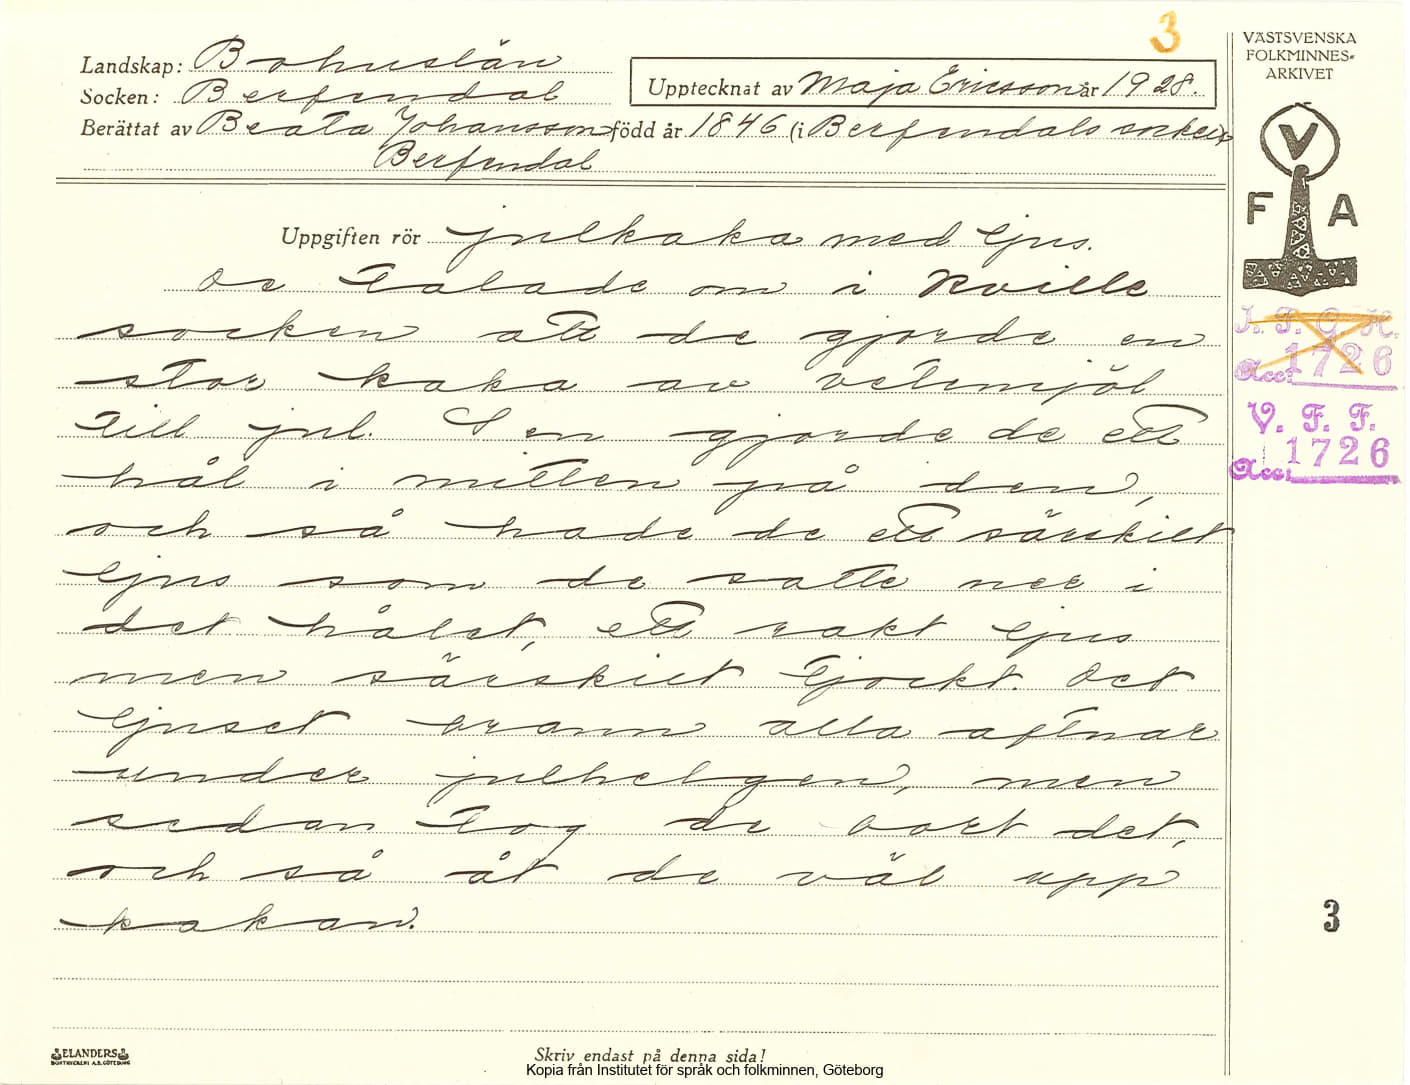 3
VÄSTSVENSKA
FOLKMINNES-
ARKIVET
Landskap: Bohuslän
Socken: Berfendal
Upptecknat av Maja Ericsson år 1928.
Berättat av Beata Johansson född år 1846 (i Berfendals socken
Berfendal
V
F A
Uppgiften rör julkaka med ljus.
De talade om i Kville
socken att de gjorde en
stor kaka av vetemjöl
till jul. Sen gjorde de ett
hål i mitten på den,
och så hade de ett särskilt
ljus som de satte ner i
det hålet, ett rakt ljus
men särskilt tjockt. Det
ljuset brann alla aftnar
under julhelgen, men
sedan tog de bort det,
och så åt de väl upp
kakan.
Acc: 1726
V. F. F.
Acc: 1726
3
ELANDERS
BOKTRYCKERI A.B. GÖTEBORG
Skriv endast på denna sida!
Kopia från Institutet för språk och folkminnen, Göteborg